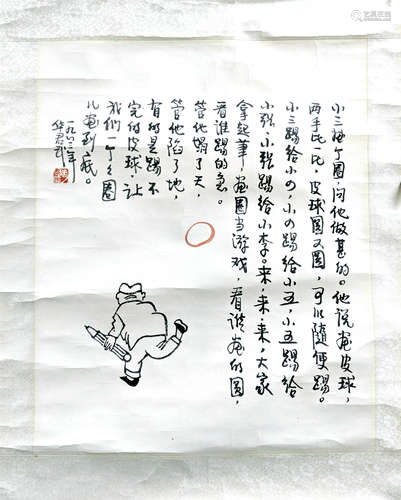 小三圈，问他做甚的。他说画皮球，
两手比一比，皮球圆又圆，可以隨便踢。
小三踢给小四，小四踢给小五，小五踢给
小张，小张踢给小李。来，来，来，大家
拿起筆，画圈当游戏，看谁画的圆，
看谁踢的急。
管他塌了天，
管他陷了地，
有的是踢不
完的皮球，让
我们一个々圈
儿画到底。
一九八二年
华君武